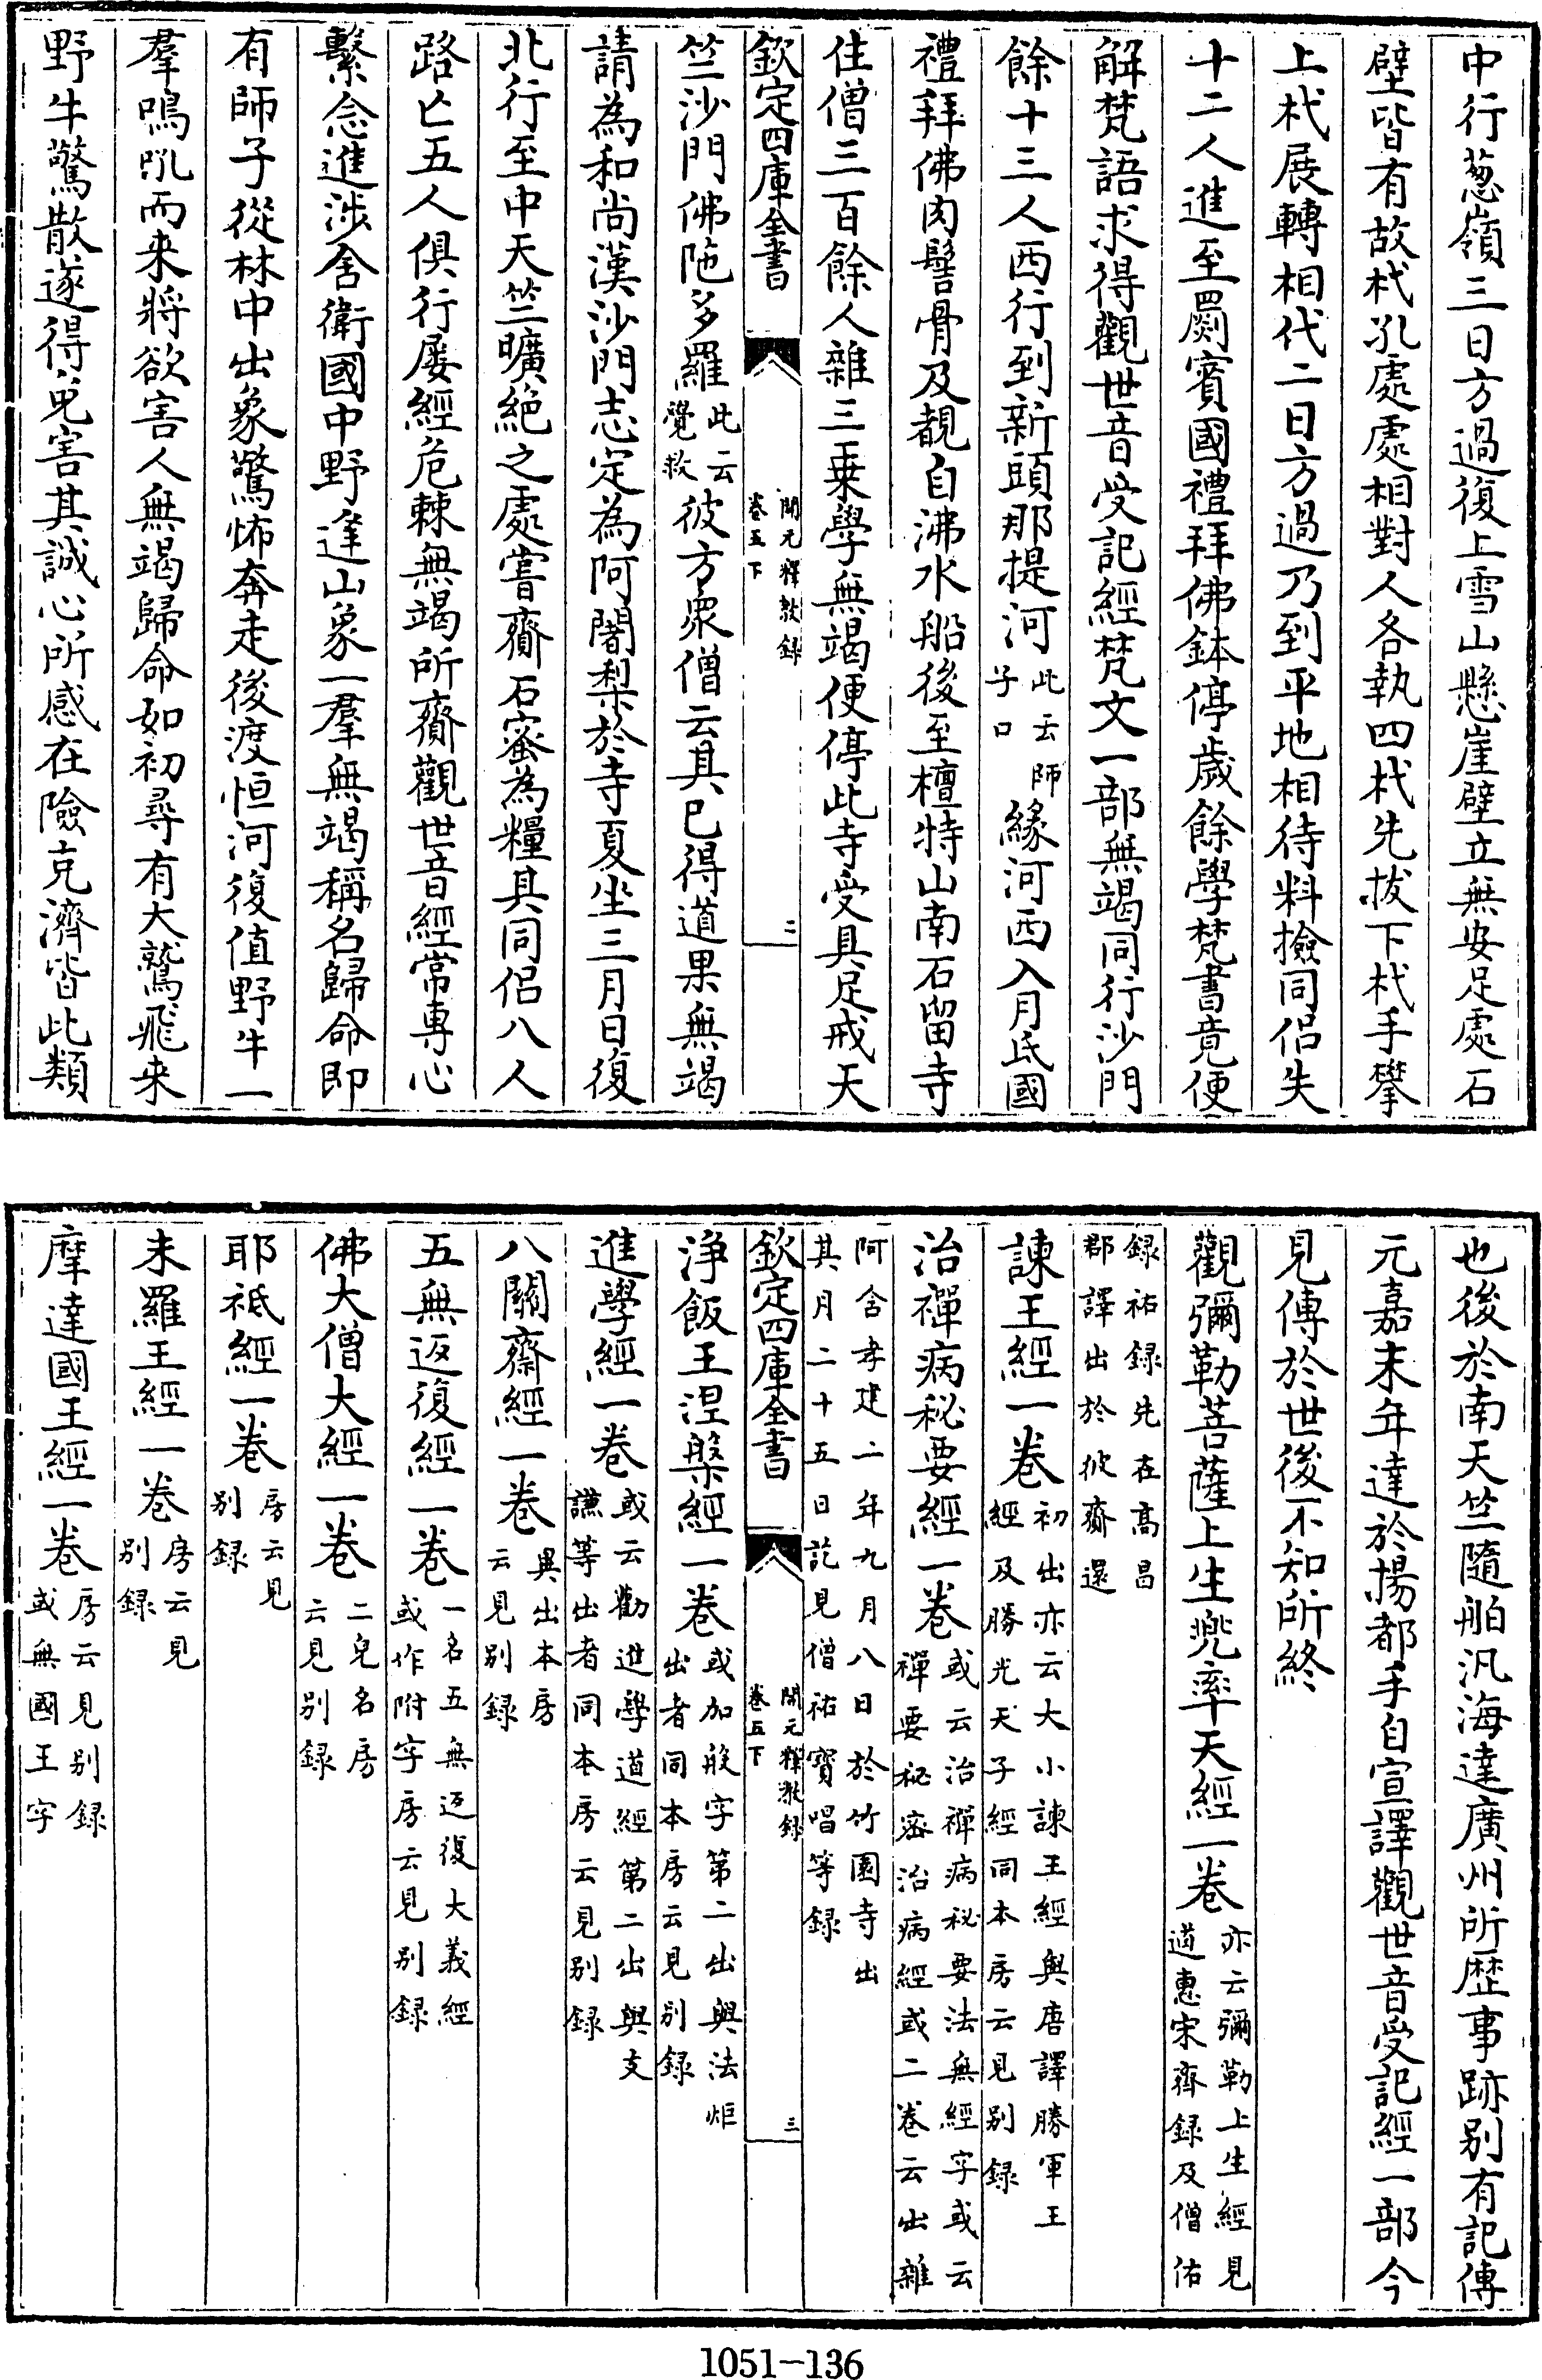 中行葱嶺三日方過復上雪山懸崖壁立無安足處石
壁皆有故杙孔處處相對人各執四杙先拔下杙手攀
上杙展轉相代二日方過乃到平地相待料撿同侶失
十二人進至罽賓國禮拜佛鉢停歲餘學梵書竟便
解梵語求得觀世音受記經梵文一部無竭同行沙門
餘十三人西行到新頭那提河此云師子口緣河西入月氐國
禮拜佛肉髻骨及覩自沸水船後至檀特山南石留寺
住僧三百餘人雜三乗學無竭便停此寺受具足戒天
欽定四庫全書 開元釋教録卷五下 二
竺沙門佛陁多羅此云覺救彼方衆僧云其已得道果無竭
請為和尚漢沙門志定為阿闍梨於寺夏坐三月日復
北行至中天竺曠絶之處嘗齎石蜜為糧其同侶八人
路亡五人俱行屢經危棘無竭所齎觀世音經常專心
繫念進涉舍衛國中野逢山象一羣無竭稱名歸命即
有師子從林中出象驚怖奔走後渡恒河復值野牛一
羣鳴吼而来將欲害人無竭歸命如初尋有大鷲飛来
野牛驚散遂得免害其誠心所感在險克濟皆此類
也後於南天竺隨舶汎海達廣州所歴事跡别有記傳
元嘉末年達於揚都手自宣譯觀世音受記經一部今
見傳於世後不知所終
觀彌勒菩薩上生兜率天經一卷亦云彌勒上生經見道惠宋齊録及僧佑
録祐録先在高昌郡譯出於彼齎還
諫王經一卷初出亦云大小諫王經與唐譯勝軍王經及勝光天子經同本房云見别録
治禪病秘要經一卷或云治禪病秘要法無經字或云禪要秘密治病經或二卷云出雜
阿含孝建二年九月八日於竹園寺出其月二十五日訖見僧祐寳唱等録
欽定四庫全書 開元釋教録卷五下 三
浄飯王涅槃經一卷或加般字第二出與法炬出者同本房云見别録
進學經一卷或云勸進學道經第二出與支謙等出者同本房云見别録
八關齋經一卷異出本房云見别録
五無返復經一卷一名五無返復大義經或作附字房云見别録
佛大僧大經一卷二皃名房云見别録
耶祗經一卷房云見别録
末羅王經一卷房云見别録
摩達國王經一卷房云見别録或無國王字
1051-136